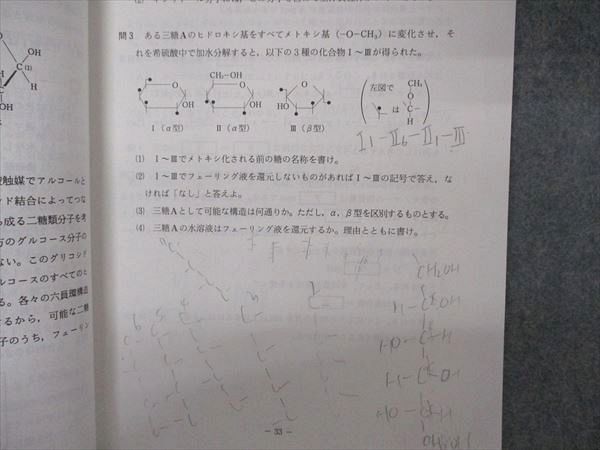 問3 ある三糖Aのヒドロキシ基をすべてメトキシ基(-O-CH₃)に変化させ,そ
れを希硫酸中で加水分解すると,以下の3種の化合物Ⅰ~Ⅲが得られた。
CH₂-OH
O
OH
Ⅰ(α型)
O
OH
Ⅱ(α型)
HO
O
OH
Ⅲ(β型)
左図で
は
CH₃
O
C
H
Ⅰ1-Ⅱ6-Ⅱ1-Ⅲ
(1) Ⅰ~Ⅲでメトキシ化される前の糖の名称を書け。
(2) Ⅰ~Ⅲでフェーリング液を還元しないものがあればⅠ~Ⅲの記号で答え,な
ければ「なし」と答えよ。
(3) 三糖Aとして可能な構造は何通りか。ただし,α,β型を区別するものとする。
(4) 三糖Aの水溶液はフェーリング液を還元するか。理由とともに書け。
CH₂OH
H-C-OH
HO-C-H
H-C-OH
HO-C-H
- 33 -
OH
C(1)
OH
触媒でアルコールと
ド結合によってつな
ら成る二糖類分子を考
方のグルコース分子の
ない。このグリコシド
ルコースのすべてのヒ
る。各々の六員環構造
するから,可能な二糖
子のうち,フェーリン